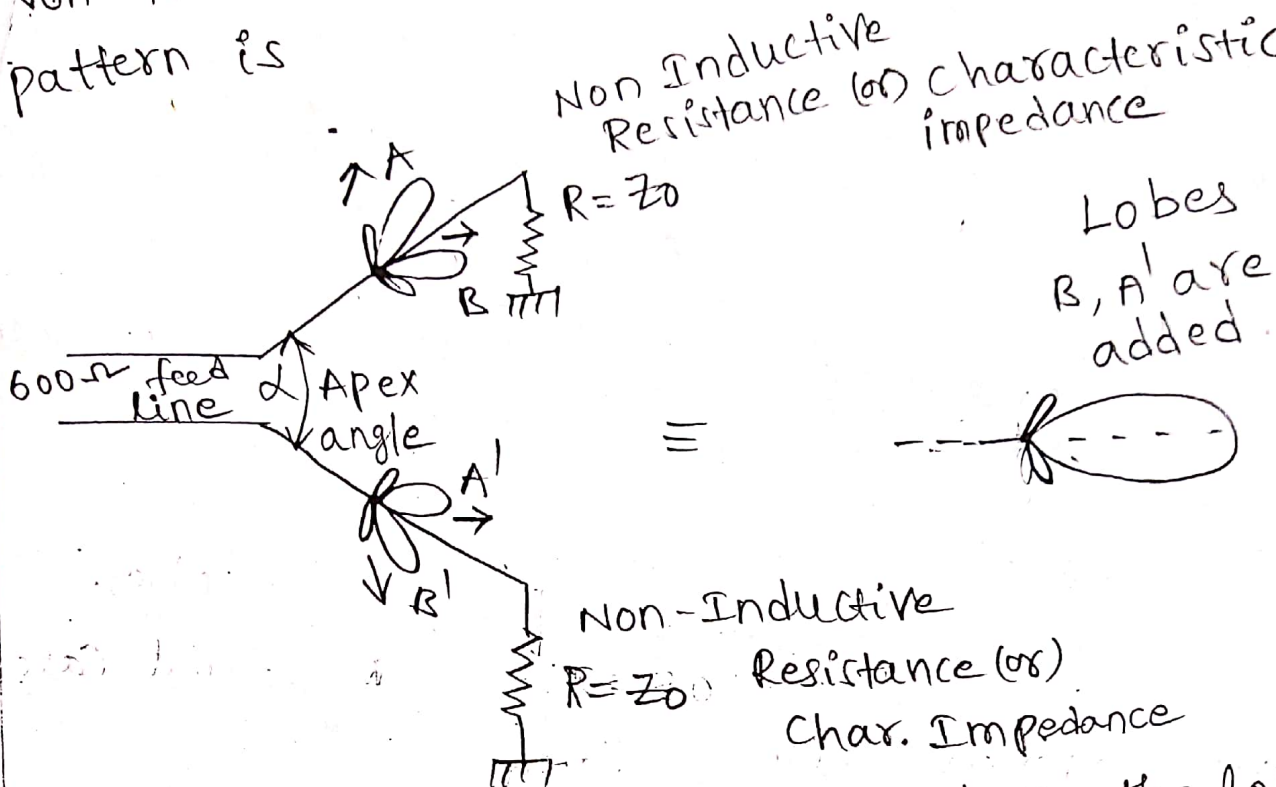 pattern is
Non Inductive
Resistance (or) characteristic
impedance
A
R = Z0
B
Lobes
B, A' are
added
600Ω feed
line
α
Apex
angle
≡
A'
B'
Non-Inductive
R = Z0 Resistance (or)
Char. Impedance